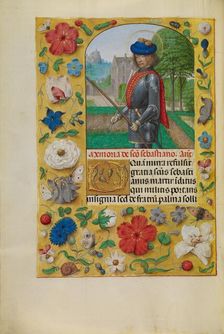 memoria de sc̄o sebastiano. Añ
Quam mira refulsit
gratia sc̄us sebasti
anus martir iclitus
qui militis portans
insignia sed de fratrū palma solli